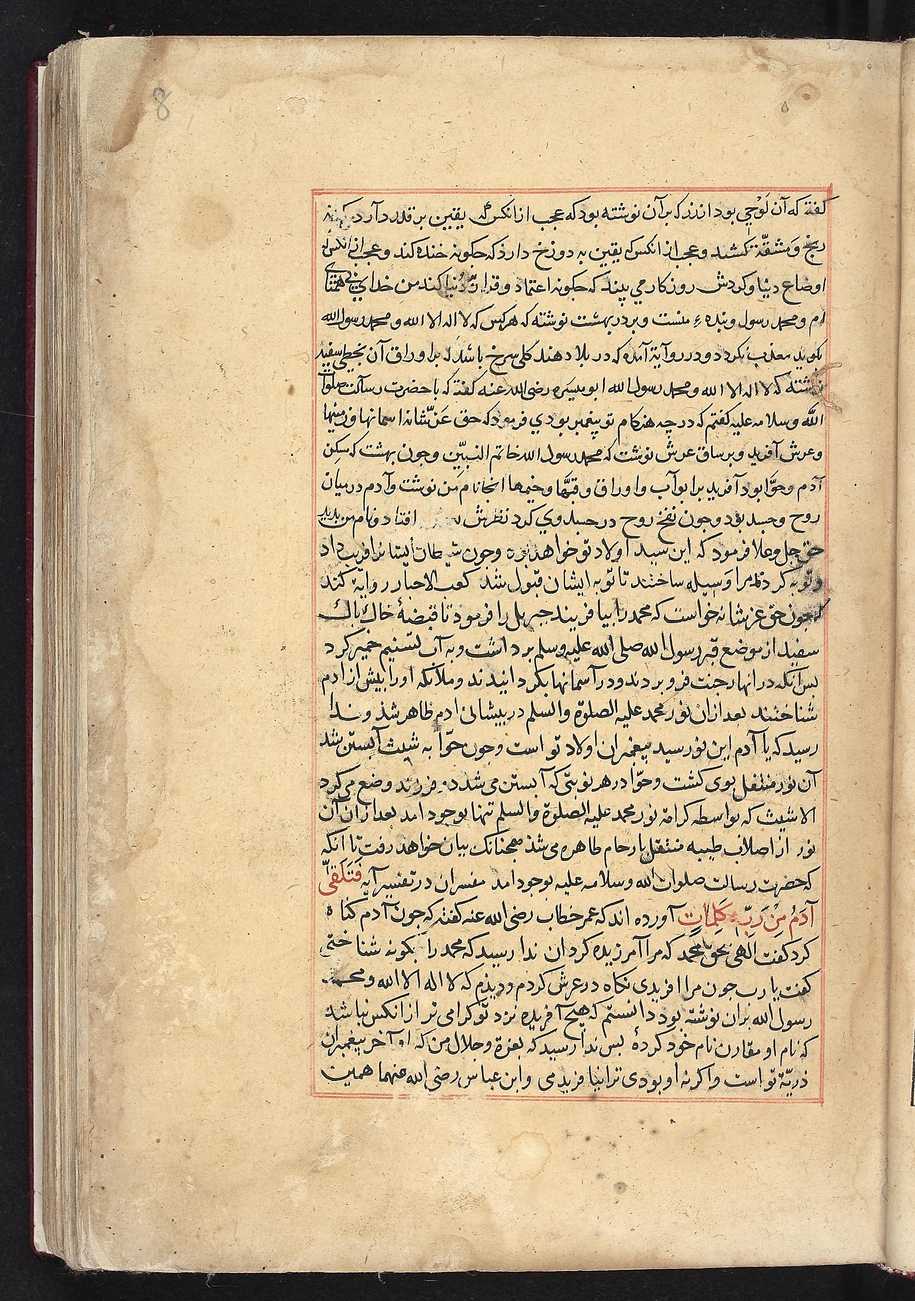 8
گفته که آن لَوْحي بود از زر که بر آن نوشته بود که عجب از انکس که یقین بر قدر دارد
رنج و مشقّة کشد و عجب از انکس که یقین به دوزخ دارد که چکونه خنده کند و عجب از انکس که
اوضاع دنیا و کردش روزکار می بیند که چکونه اعتماد و قرار به دنیا کند من خدای بی همتای
ام و محمد رسول و بنده ء منست و بر در بهشت نوشته که هر کس که لا اله الا الله و محمد رسول الله
بکوید معذب نکردد و در روایة آمده که در بلاد هند کلی سرخ باشد که بر اوراق آن بخطی سفید
نوشته که لا اله الا الله و محمد رسول الله ابو میسره رضی الله عنه کفته که با حضرت رسالت صلوات
الله و سلامه علیه کفتم که در چه هنکام تو پیغمبر بودي فرمود که حق عَزّ شانه اسمانها و زمینها
و عرش آفرید و بر ساق عرش نوشت که محمد رسول الله خاتم النبیّین و چون بهشت که سکن
آدم و حوّا بود آفرید بر ابوآب و اوراق و قبّها و خیمها انجا نام من نوشت و آدم در میان
روح و جسد بود و چون نفخ روح در جسد وي کرد نظرش افتاد و نام من بدید
حق جل و علا فرمود که این سید اولاد تو خواهد بود و چون شیطان ایشانرا فریب داد
و توبه کردند مرا وسیله ساختند تا توبه ایشان قبول شد کعب الاحبار روایة کند
که چون حق عز شانه خواست که محمد را بیافریند جبریل را فرمود تا قبضهٔ خاك پاك
سفید از موضع قبر رسول الله صلی الله علیه و سلم برداشت و به آب تسنیم خمیر کرد
پس انکه در انهار جنت فرو بردند و در آسمانها بکردانیدند و ملائکه او را پیش از ادم
شناختند بعد از ان نور محمد علیه الصلوة والسلم در پیشانی ادم ظاهر شد و ندا
رسید که یا آدم این نور سید پیغمبران اولاد تو است و چون حوّا به شیث آبستن شد
آن نور منتقل بوی کشت و حوّا در هر نوبتی که آبستن می شد دو فرزند وضع می کرد
الا شیث که بواسطه کرامة نور محمد علیه الصلوة والسلم تنها بوجود امد بعد از ان آن
نور از اصلاب طیبه منتقل بارحام طاهره می شد همچنانک بیان خواهد رفت تا انکه
که حضرت رسالت صلوات الله و سلامه علیه بوجود امد مفسران در تفسیر آیه فَتَلَقىّ
آدَمُ مِنْ رَبِّهِ کَلِمَاتٍ آورده اند که عمر خطاب رضی الله عنه کفته که چون آدم کناه
کرد کفت الٓهی بحق محمد که مرا آمرزیده کردان ندا رسید که محمد را چکونه شناختی
کفت یا رب چون مرا افریدی نکاه در عرش کردم و دیدم که لا اله الا الله و محمد
رسول الله بران نوشته بود دانستم که هیچ آفریده نزد تو کرامی تر از انکس نباشد
که نام او مقارن نام خود کردهٔ پس ندا رسید که بعزة و جلال من که او آخر پیغمبران
ذریّة تو است و اکر نه او بودی ترا نیافریدمی و ابن عباس رضی الله عنهما همین